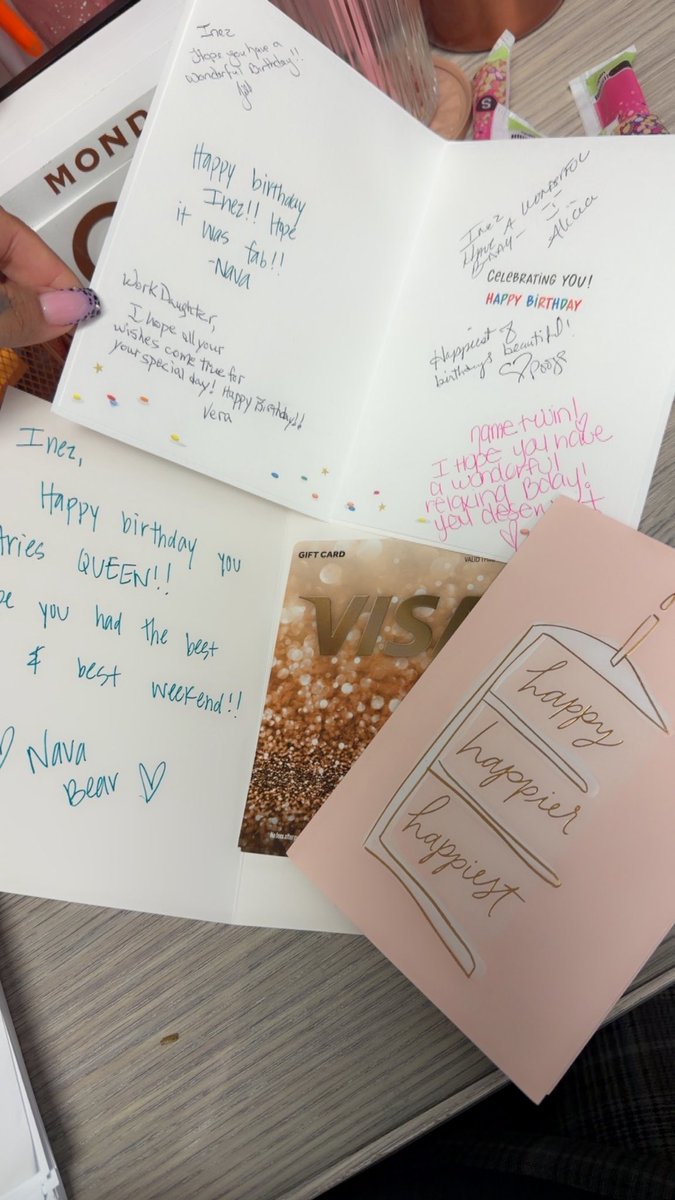 MOND
Inez
Hope you have a
Wonderful Birthday!!
Jill
Happy birthday
Inez!! Hope
it was fab!!
-Nava
Work Daughter,
I hope all your
wishes come true for
your special day! Happy Birthday!!
Vera
Inez
Have A WONDERFUL
BDAY-
Alicia
CELEBRATING YOU!
HAPPY BIRTHDAY
Happiest of
birthdays beautiful!
name twin!
I Hope you have
a wonderful
relaxing Bday!
you deserve it
S
Inez,
Happy birthday you
Aries QUEEN!!
you had the best
& best weekend!!
Nava
Bear
GIFT CARD
VALID
VISA
happy
happier
happiest